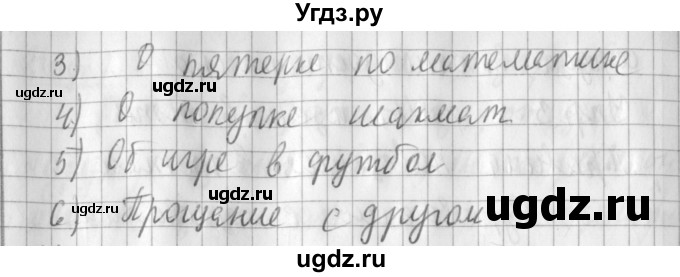 Угдз.ру
3) О пятерке по математике
ugdz.ru
ugdz.ru
4) О покупке шахмат.
ugdz.ru
5) Об игре в футбол
ugdz.ru
6) Прощание с другом
ugdz.ru
ugdz.ru
ugdz.ru